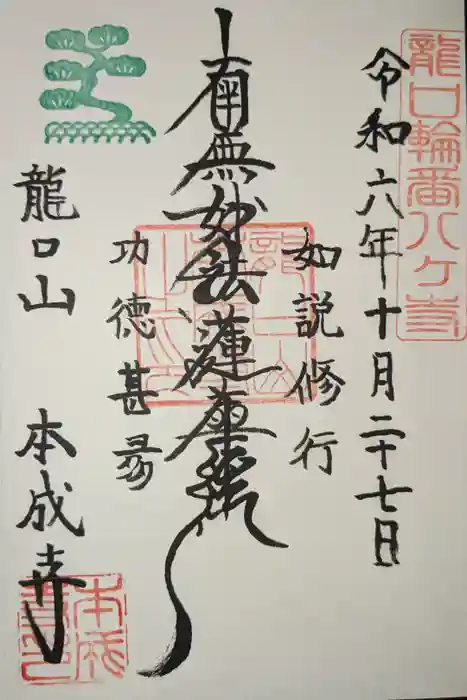 龍口輪番八ケ寺
令和六年十月二十七日
如説修行
南無妙法蓮華経
功徳甚多
龍口山 本成寺